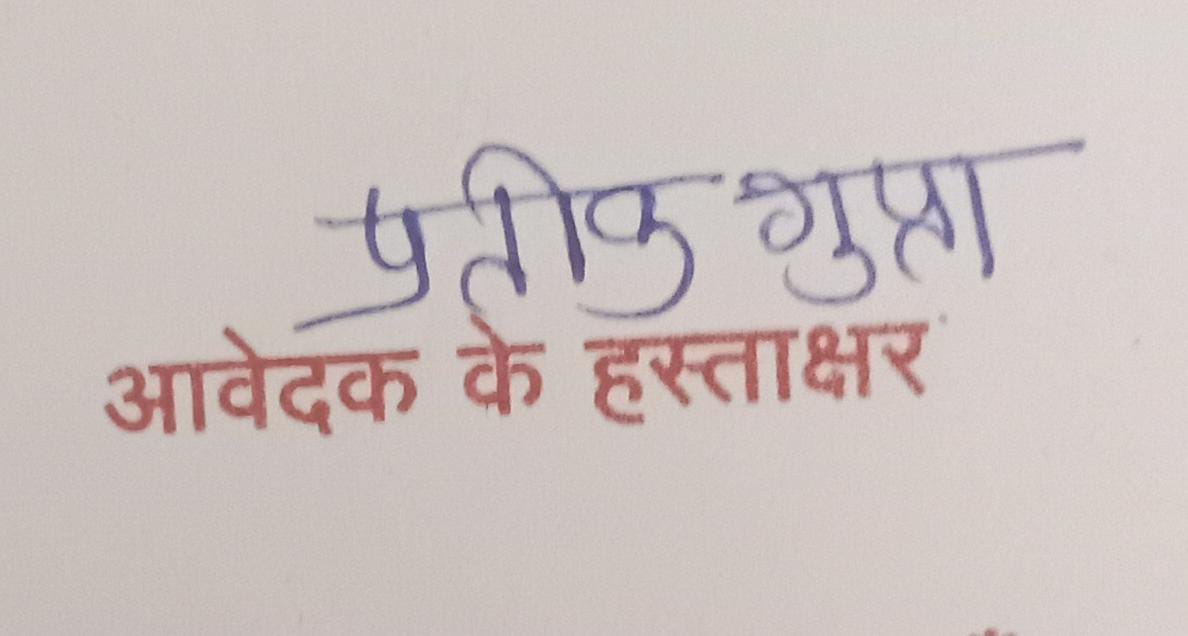 प्रतीक गुप्ता
आवेदक के हस्ताक्षर